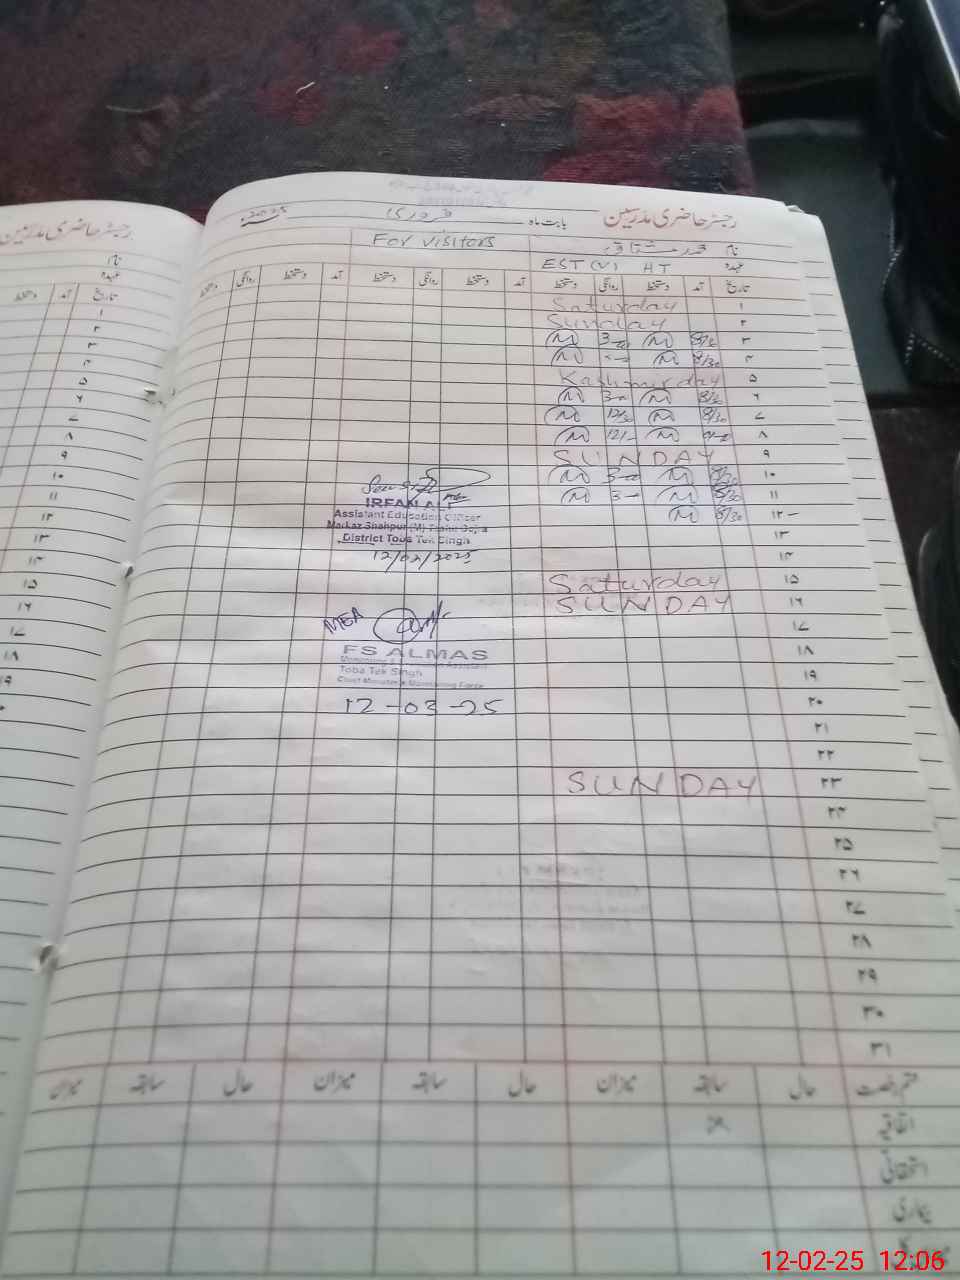 رجسٹر حاضری مدرسین بابت ماہ فروری
For visitors
نام
EST (V) HT عہدہ
تاریخ آمد دستخط روانگی دستخط آمد دستخط روانگی دستخط آمد دستخط روانگی دستخط
۱ Saturday
۲ Sunday
۳ M 3-00 M
۴ M M 8/30
۵ Kashmir day
۶ M 3-00 M 8/30
۷ M 12/30 M 8/30
۸ M 12/- M
۹ SUNDAY
۱۰ M 3-00 M 8/30
۱۱ M 3- M 8/30
۱۲ M 8/30
۱۳
۱۴
۱۵ Saturday
۱۶ SUNDAY
۱۷
۱۸
۱۹
۲۰
۲۱
۲۲
۲۳ SUNDAY
۲۴
۲۵
۲۶
۲۷
۲۸
۲۹
۳۰
۳۱
IRFAN ALI
Assistant Education Officer
Markaz Shahpur (M) Tehsil Gojra
District Toba Tek Singh
12/02/2025
MEA
FS ALMAS
Monitoring & Assistant
Toba Tek Singh
Chief Minister's Monitoring Force
12-03-25
قسم رخصت حال سابقہ میزان حال سابقہ میزان حال سابقہ میزان
اتفاقیہ
استحقاقی
بیماری
رجسٹر حاضری مدرسین
نام
عہدہ
تاریخ آمد دستخط
۱
۲
۳
۴
۵
۶
۷
۸
۹
۱۰
۱۱
۱۲
۱۳
۱۴
۱۵
۱۶
۱۷
۱۸
۱۹
12-02-25 12:06